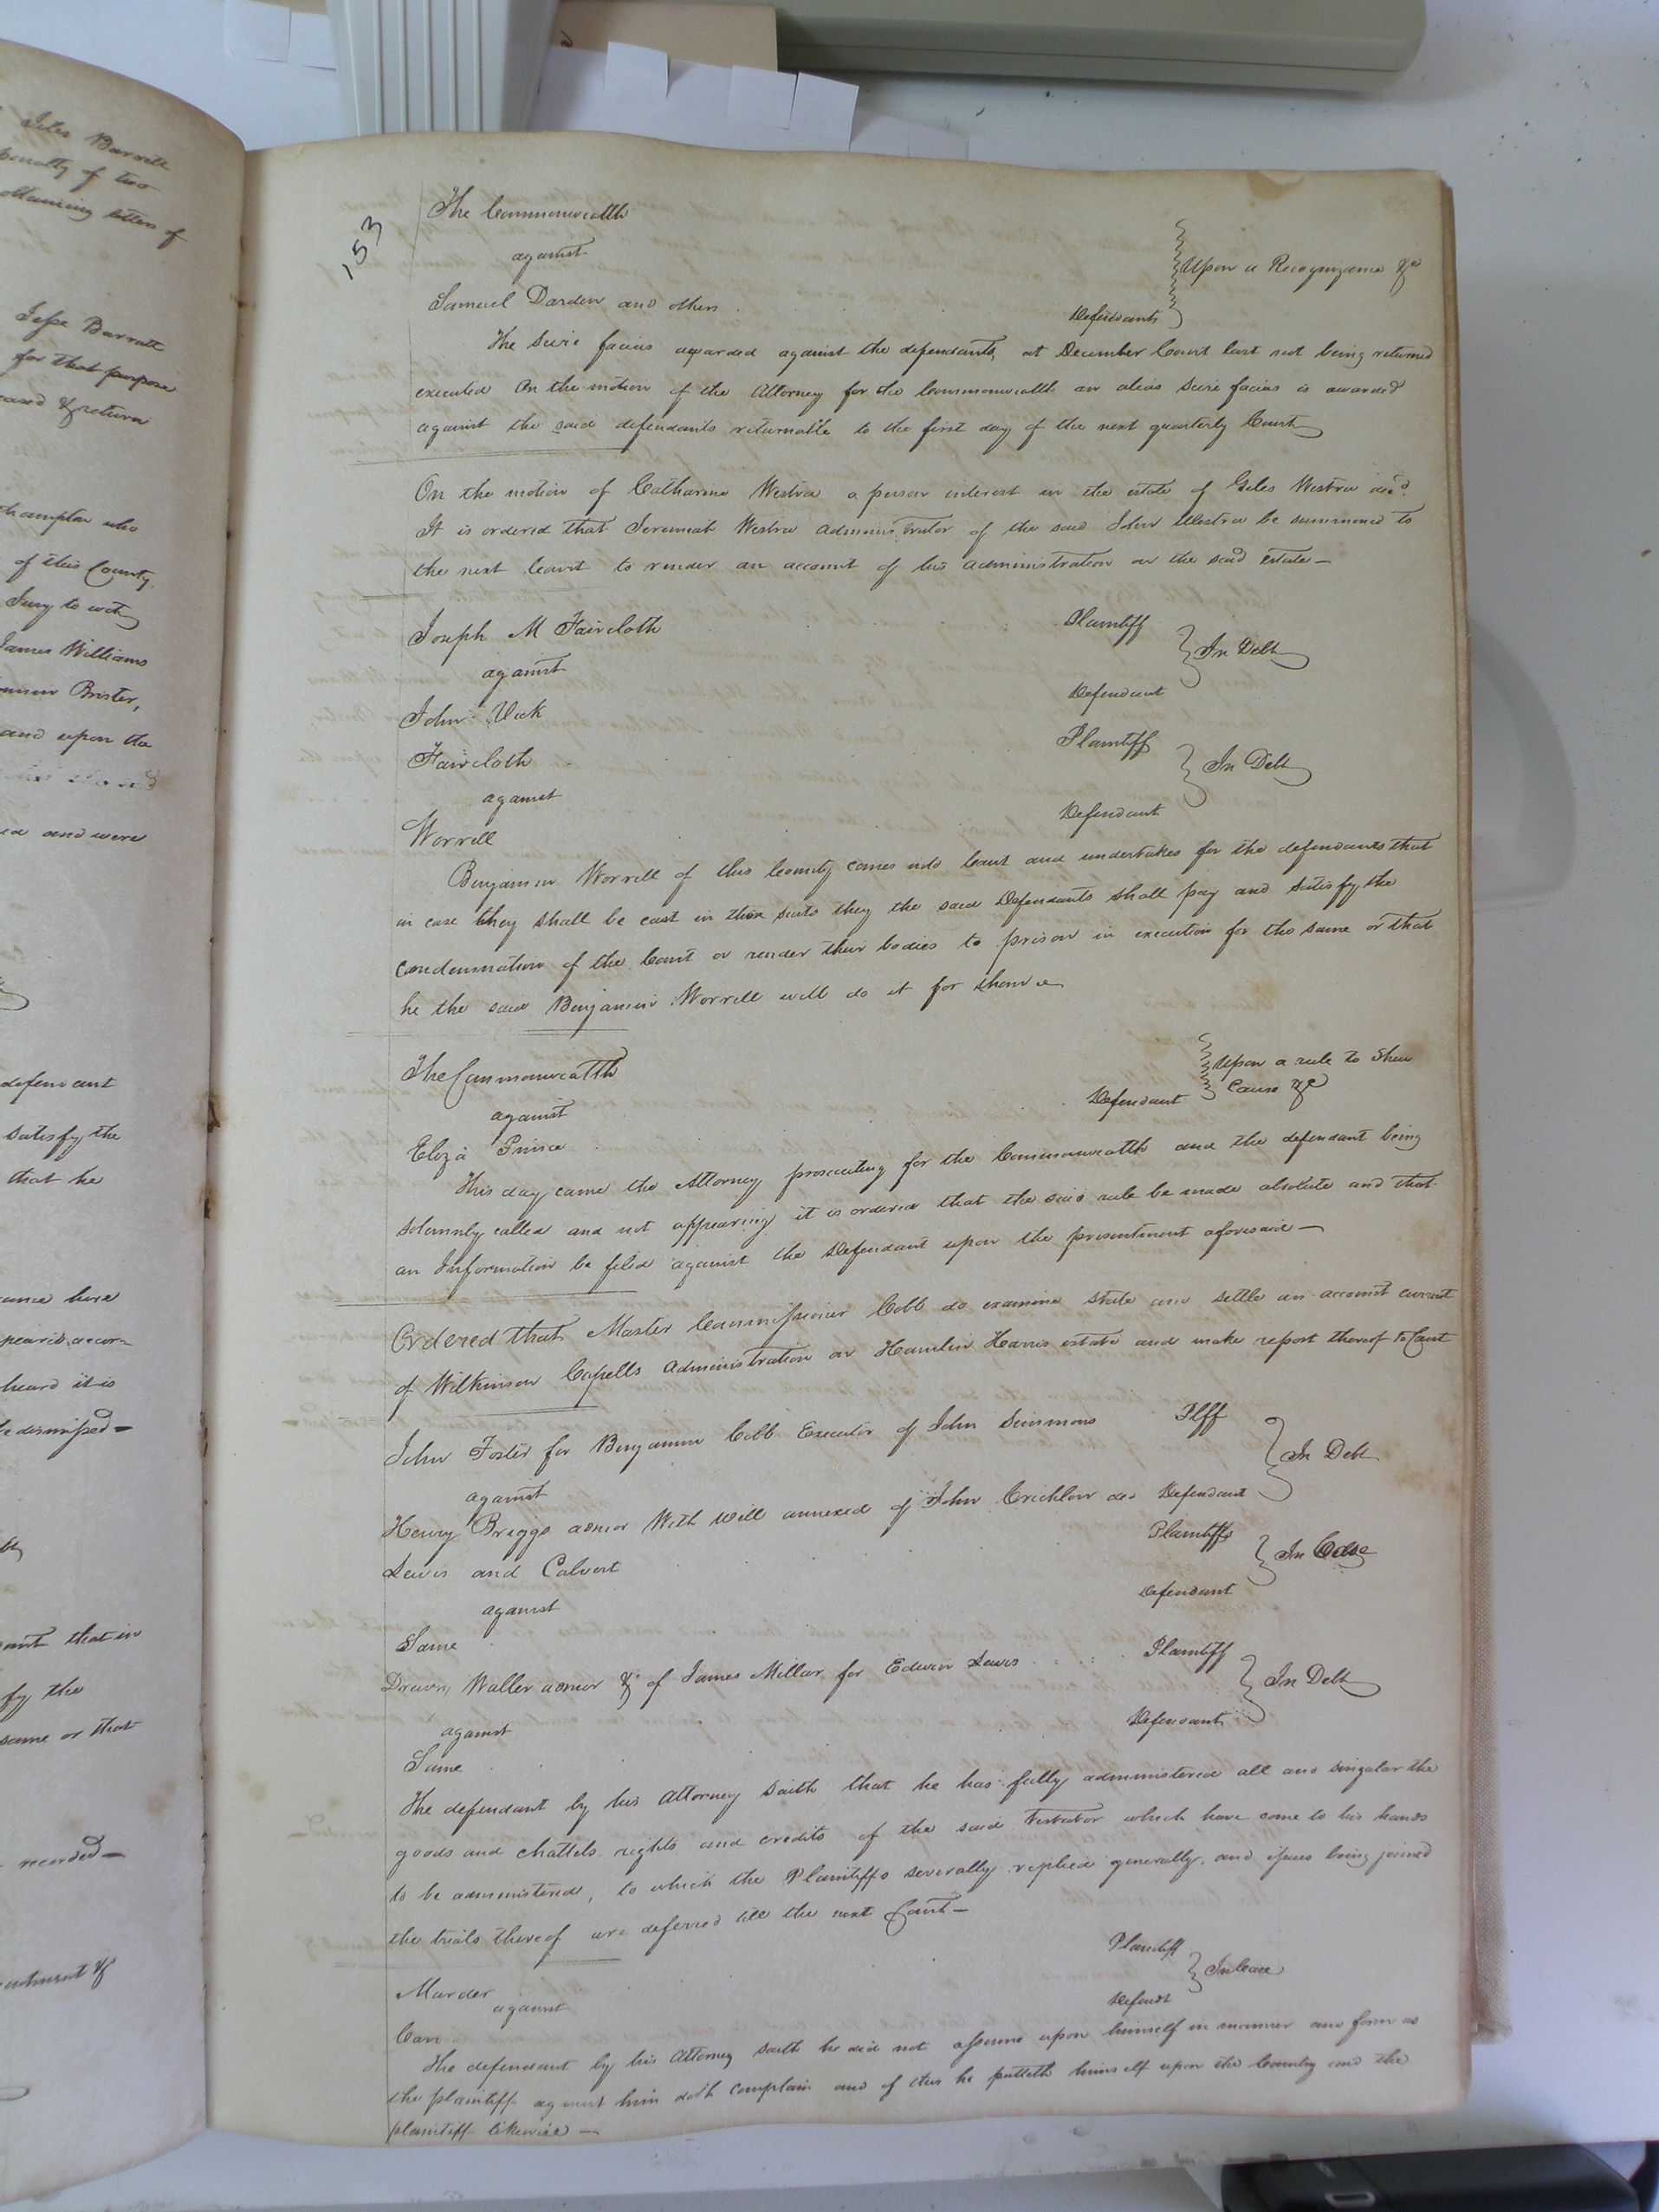 Barrett
penalty of two
obtaining letters of
Jesse Barrett
for that purpose
& return
who
of this County
Jury to wit
James Williams
Brister,
and upon the
and were
defendant
satisfy the
that he
here
heard it is
dismissed—
that in
fy the
same or that
recorded—
153
The Commonwealth
against
Upon a Recognizance &c
Samuel Darden and others
Defendants
The Scire facias awarded against the defendants at December Court last not being returned
executed On the motion of the Attorney for the Commonwealth an alias scire facias is awarded
against the said defendants returnable to the first day of the next quarterly Court
On the motion of Catharine Westra a person interest in the estate of Giles Westra decd.
It is ordered that Jeremiah Westra administrator of the said John Westra be summoned to
the next Court to render an account of his administration on the said estate—
Joseph M Faircloth Plaintiff
against In Debt
John Vick Defendant
Faircloth Plaintiff
against In Debt
Worrell Defendant
Benjamin Worrell of this County comes into Court and undertakes for the defendants that
in case they shall be cast in their suits they the said Defendants shall pay and satisfy the
condemnation of the Court or render their bodies to prison in execution for the same or that
he the said Benjamin Worrell will do it for them
The Commonwealth
against Defendant Upon a rule to Shew
Cause &c
Eliza Prince
This day came the Attorney prosecuting for the Commonwealth and the defendant being
solemnly called and not appearing it is ordered that the said rule be made absolute and that
an Information be filed against the Defendant upon the presentment aforesaid—
Ordered that Master Commissioner Cobb do examine state and settle an account current
of Wilkinson Capells administration on Hamlin Harris estate and make report thereof to Court
John Foster for Benjamin Cobb Executor of John Simmons Plff
against In Debt
Henry Briggs admor With will annexed of John Crichlow dec Defendant
Lewis and Calvert Plaintiffs
against In Case
Same Defendant
Drewry Waller admor &c of James Millar for Edwin Lewis Plaintiff
against In Debt
Same Defendant
The defendant by his Attorney saith that he has fully administered all and singular the
goods and chattels rights and credits of the said Testator which have come to his hands
to be administered, to which the Plaintiffs severally replied generally, and issues being joined
the trials thereof are deferred till the next Court—
Murder Plaintiff
against In Case
Carr Defendt
The defendant by his Attorney saith he did not assume upon himself in manner and form as
the plaintiff against him doth complain and of this he putteth himself upon the Country and the
plaintiff likewise—